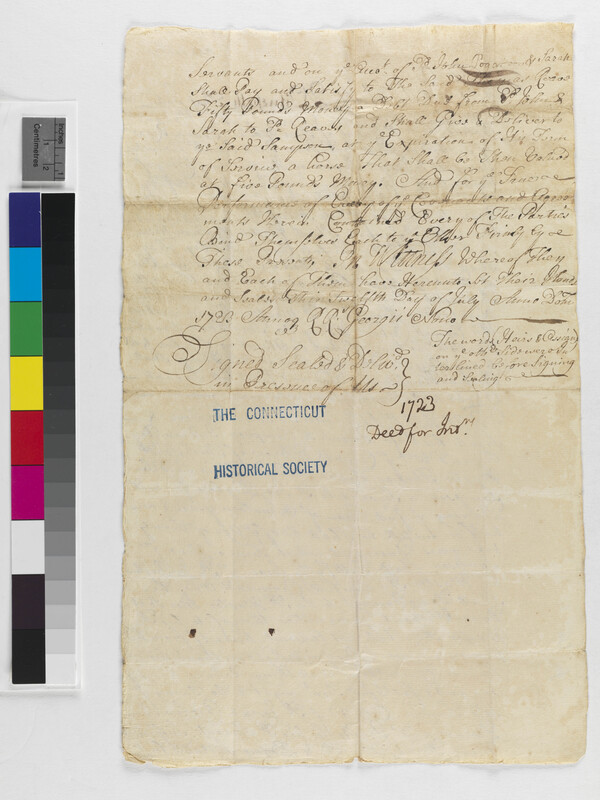 Servants and on ye of Sd John & Sarah
Shall Pay and Satisfy to The Said Reeve
Fifty Pounds Money from Sd John &
Sarah to Sd Reeves and Shall Give & Deliver to
ye Said Sampson at ye Expiration of His Term
of Service a horse That Shall be Then Valued
at Five Pounds Money. And for ye
Performance of Every of ye Covenants and Agree
ments Herein Every of The Parties
Bind Themselves Each to ye Other Firmly by
These Presents In Wittness Whereof They
and Each of Them have Hereunto Set Their Hands
and Seals This Twelfth Day of July Anno Dom
1723 Annoq RRs Georgii Nono
Signed Sealed & Delivd
in Presence of Us
The words Heirs & Assigns
on ye othr Side were In
terlined before Signing
and Sealing
1723
Deed for
THE CONNECTICUT
HISTORICAL SOCIETY
Inches
Centimetres
1
2